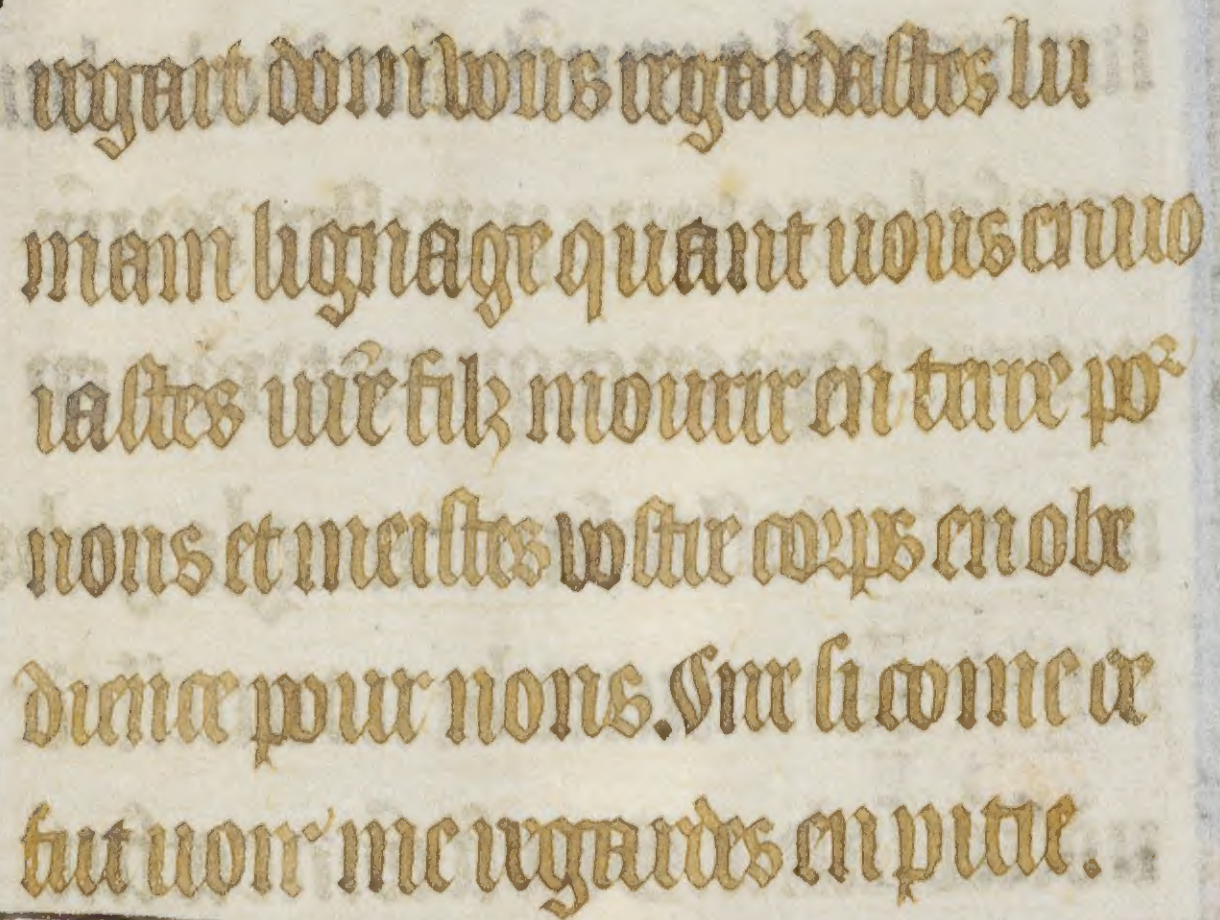 regart dont vous regardastes lu
main lignage quant uous enuo
iastes ure filz mourir en terre por
nous et meistes vostre corps en obe
dience pour nous. Sire si come ce
fut uoir me regardes en pitie.